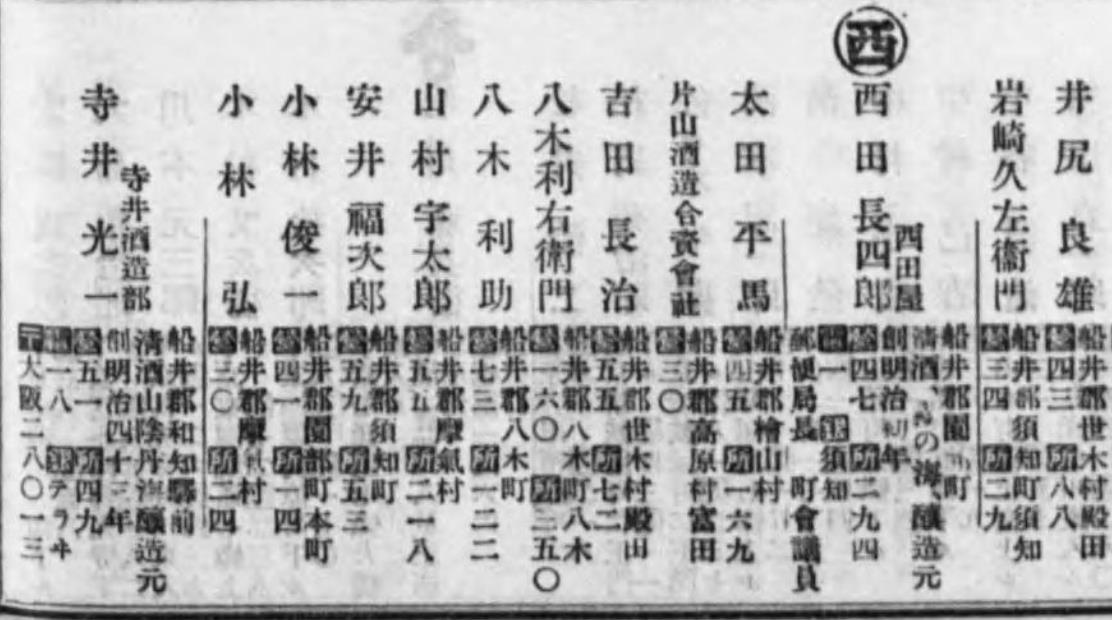 井尻良雄
船井郡世木村殿田
營四三 所八八
岩崎久左衞門
船井郡須知町須知
營三四 所二九
西
西田屋
西田長四郎
船井郡園 町
清酒、 の海、釀造元
創明治初年
營四七 所二九四
一 須知
郵便局長 町會議員
太田平馬
船井郡檜山村
營四五 所一六九
片山酒造合資會社
船井郡高原村富田
營三〇
吉田長治
船井郡世木村殿田
營五五 所七二
八木利右衞門
船井郡八木町八木
營一六〇 所三五〇
八木利助
船井郡八木町
營七三 所一二二
山村宇太郎
船井郡摩氣村
營五五 所二一八
安井福次郎
船井郡須知町
營五九 所五三
小林俊一
船井郡園部町本町
營四一 所一四
小林弘
船井郡摩氣村
營三〇 所二四
寺井酒造部
寺井光一
船井郡和知驛前
清酒山陰丹海釀造元
創明治四十三年
營五一 所四九
一八 テラヰ
大阪二八〇一三